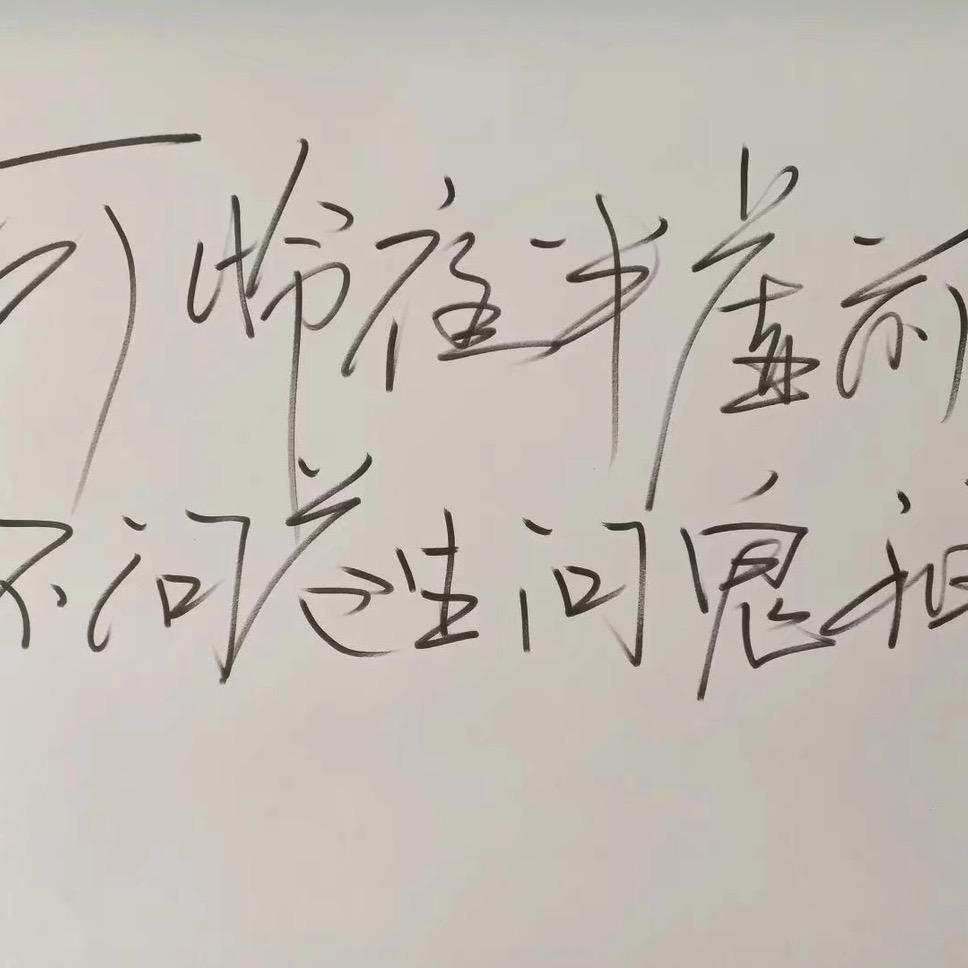 可怜夜半虚前
不问苍生问鬼神